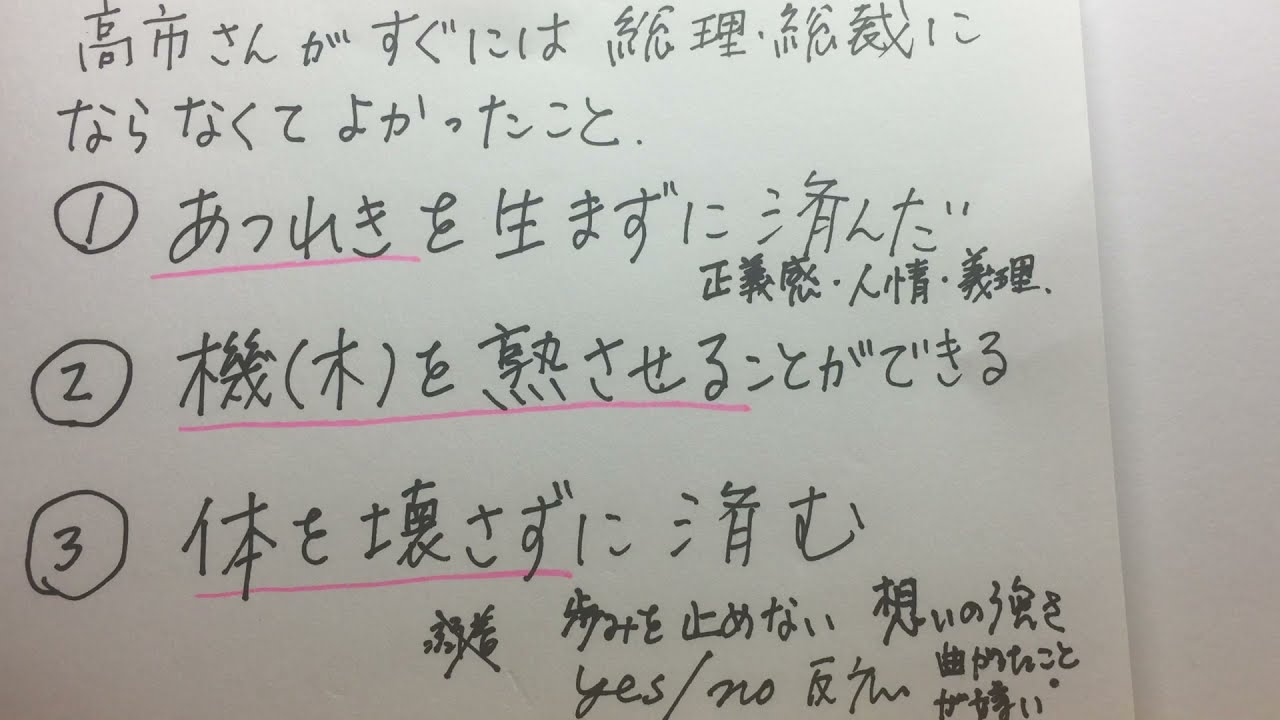 高市さんがすぐには 総理・総裁に
ならなくてよかったこと.
① あつれきを生まずに済んだ
正義感・人情・義理.
② 機(木)を熟させることができる
③ 体を壊さずに済む
歩みを止めない 想いの強さ
yes/no 曲がったこと
が嫌い。